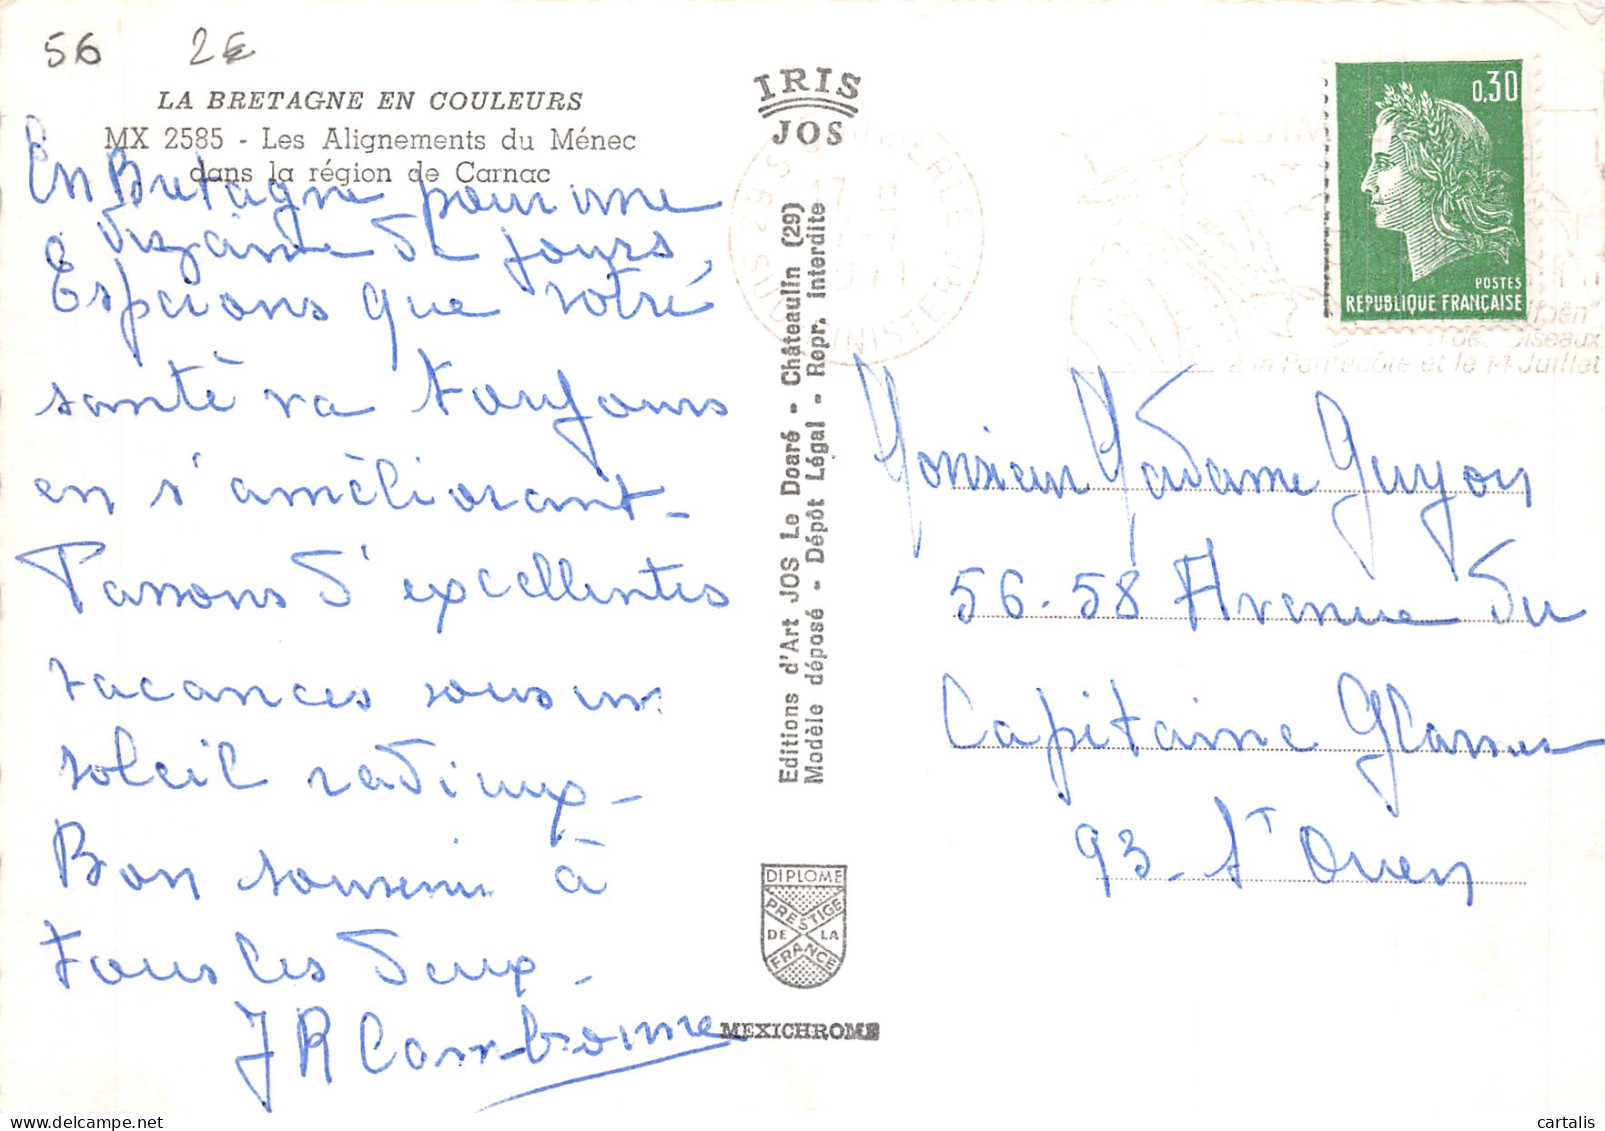 56 2€
LA BRETAGNE EN COULEURS
MX 2585 - Les Alignements du Ménec
dans la région de Carnac
En Bretagne pour une
dizaine de jours,
Espérons que votre
santé va toujours
en s'améliorant -
Passons d'excellentes
vacances sous un
soleil radieux -
Bon souvenir à
tous les deux -
JR Cambronne
IRIS
JOS
Editions d'Art JOS Le Doaré - Châteaulin (29)
Modèle déposé - Dépôt Légal - Repr. interdite
DIPLOME
PRESTIGE
DE LA
FRANCE
MEXICHROME
29 S QUIMPERLE
17 H
1971
SUD FINISTERE
0,30
POSTES
REPUBLIQUE FRANÇAISE
à la Pentecôte et le 14 Juillet
Monsieur Madame Guyon
56-58 Avenue du
Capitaine Glarner
93 - St Ouen
cartalis